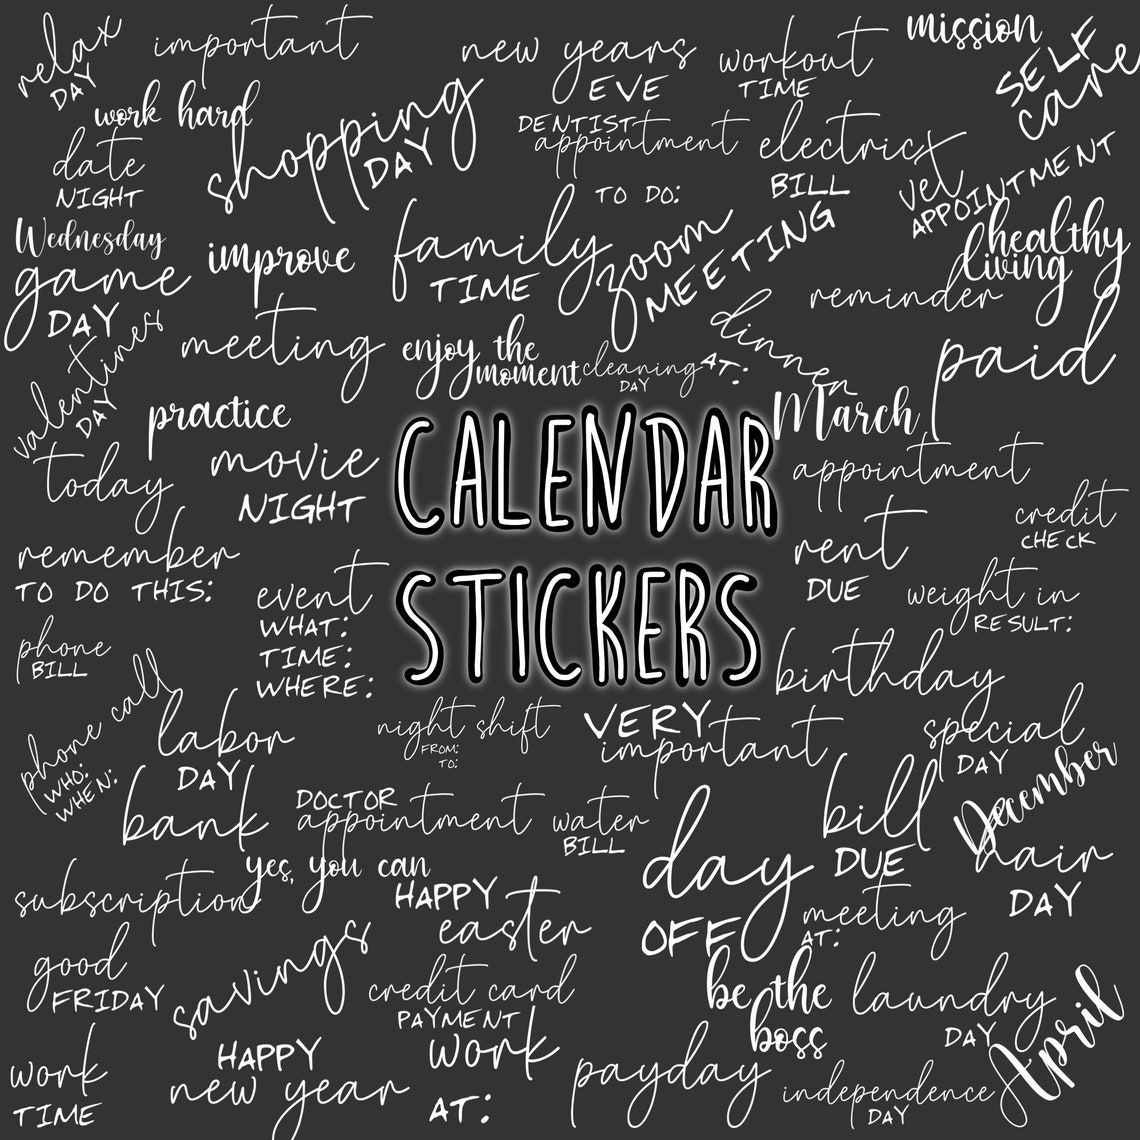 relax
DAY
important
new years
EVE
workout
TIME
mission
SELF
care
work hard
shopping
DAY
DENTIST
appointment
electric
BILL
vet
APPOINTMENT
date
NIGHT
TO DO:
Wednesday
improve
family
TIME
zoom
MEETING
healthy
living
game
DAY
reminder
meeting
enjoy the
moment
cleaning
DAY
dinner
AT:
paid
valentines
DAY
practice
March
CALENDAR
STICKERS
today
movie
NIGHT
appointment
credit
CHECK
remember
TO DO THIS:
rent
DUE
event
WHAT:
TIME:
WHERE:
weight in
RESULT:
phone
BILL
birthday
phone call
WHO:
WHEN:
labor
DAY
night shift
FROM:
TO:
VERY
important
special
DAY
December
bank
DOCTOR
appointment
water
BILL
bill
DUE
day
OFF
hair
DAY
yes, you can
subscription
HAPPY
easter
meeting
AT:
good
FRIDAY
savings
credit card
PAYMENT
be the
boss
laundry
DAY
April
work
TIME
HAPPY
new year
work
AT:
payday
independence
DAY